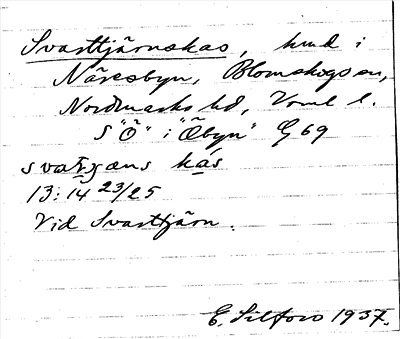 Svarttjärnskas, hmd i
Näresbyn, Blomskogs sn,
Nordmarks hd, Verml l.
S "Ö" i "Öbyn" G 69
svaʈɟæns kás
13:14 23/25
Vid Svarttjärn.
E. Silfors 1937.